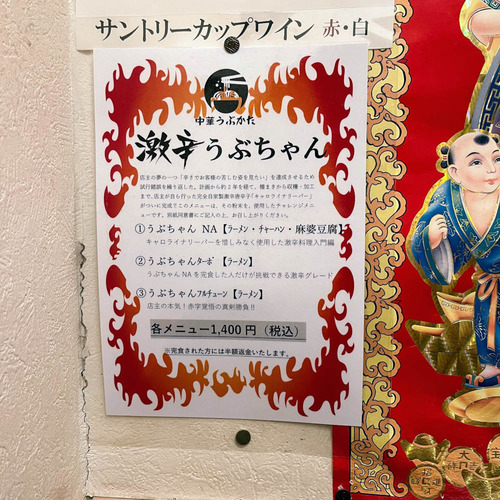 サントリーカップワイン 赤・白
中華うぶかた
激辛うぶちゃん
店主の夢の一つ「辛さでお客様の苦しむ姿を見たい」を達成させるため
試行錯誤を繰り返した。計画から約2年を経て、種まきから収穫・加工
まで、店主が自ら行った完全自家製激辛唐辛子「キャロライナリーパー」
がついに完成てこのメニューは、その粉末を、使用したチャレンジメニ
ューです。別紙同意書にご記入の上、お召し上がりください。
①うぶちゃん NA【ラーメン・チャーハン・麻婆豆腐】
キャロライナリーパーを惜しみなく使用した激辛料理入門編
②うぶちゃんターボ 【ラーメン】
うぶちゃんNAを完食した人だけが挑戦できる激辛グレード
③うぶちゃんフルチューン【ラーメン】
店主の本気!赤字覚悟の真剣勝負!!
各メニュー1,400円(税込)
※完食された方には半額返金いたします。
大
吉